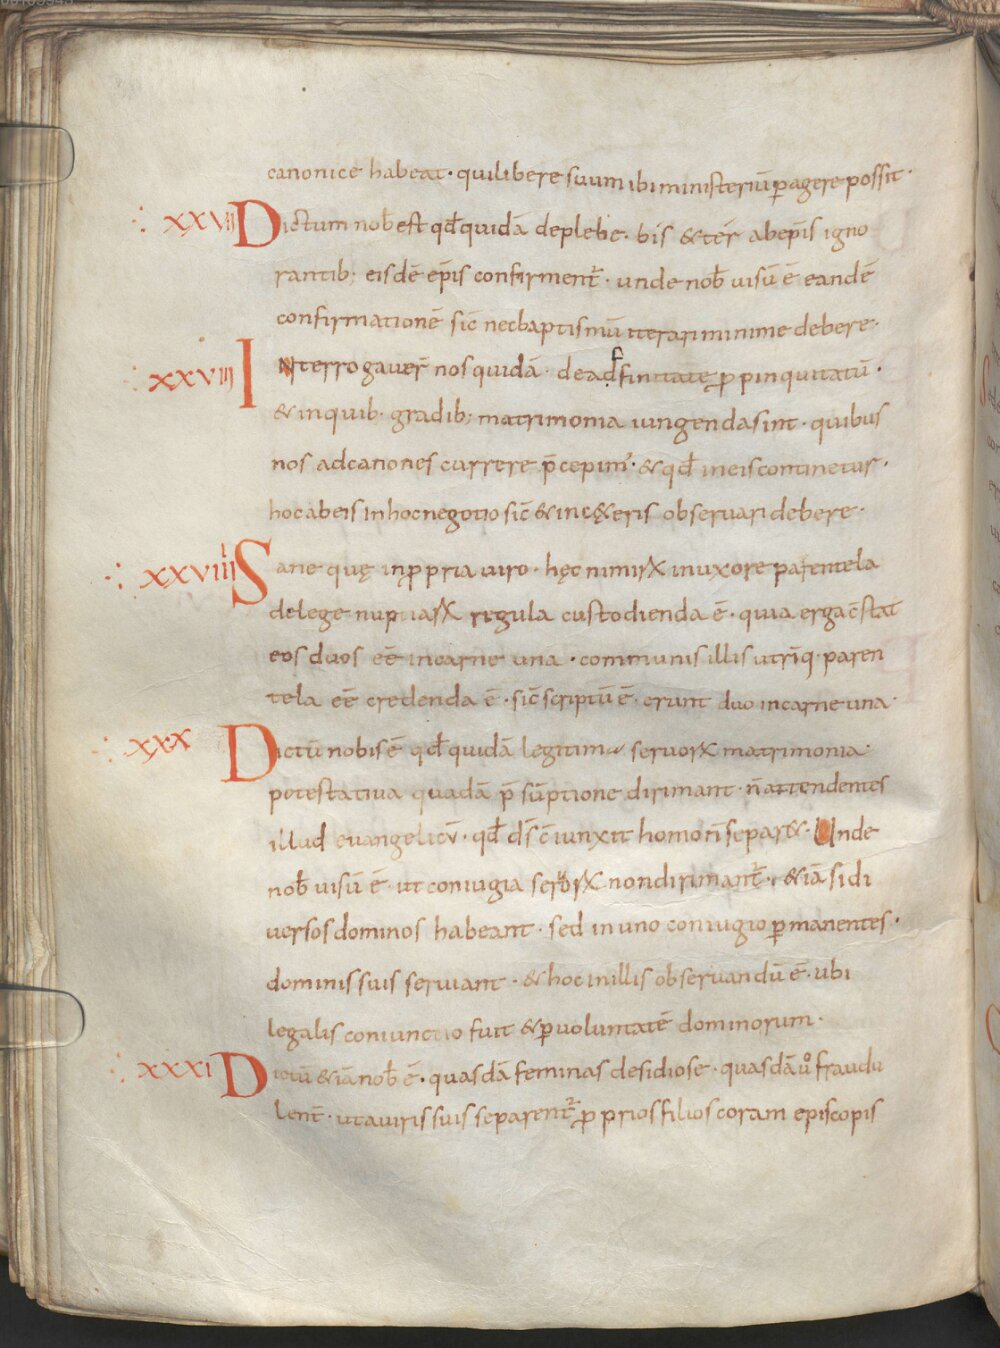 canonice habeat · qui libere suum ibi ministeriū ꝑagere possit ·
XXVII Dictum nob̄ est qd̄ quidā de plebe · bis & ter̄ ab ep̄is igno
rantib; eisdē ep̄is confirment̄ · unde nob̄ uisū ē eandē
confirmationē sic̄ nec baptismū iterari minime debere ·
XXVIII INterrogauer̄ nos quidā · de adfinitate ꝓpinquitatū ·
& in quib· gradib; matrimonia iungenda sint · quibus
nos ad canones currere p̄cepim' · & qd̄ in eis continetur ·
hoc ab eis in hoc negotio sic̄ & in c&eris obseruari debere ·
XXVIIII Sane quę in ꝓpria uiro · hęc nimirꝝ in uxore parentela
de lege nuptiarꝝ regula custodienda ē · quia erga c̄stat
eos duos eē in carne una · communis illis utriq; paren
tela eē credenda ē · sic̄ scriptū ē · erunt duo in carne una ·
XXX Dictū nobis ē qd̄ quidā legitima seruorꝝ matrimonia
potestatiua quadā p̄sūptione dirimant · n̄ attendentes
illud euangelicū · qd̄ d̄s c̄iunxit homo n̄ separ& · Unde
nob̄ uisū ē · ut coniugia seruorꝝ non dirimant̄ · &iā si di
uersos dominos habeant · sed in uno coniugio ꝑmanentes ·
dominis suis seruiant · & hoc in illis obseruandū ē · ubi
legalis coniunctio fuit & ꝑ uoluntatē dominorum ·
XXXI Dictū &iā nob̄ ē · quasdā feminas desidiose · quasdā uͦ fraudu
lent̄ · ut a uiris suis separent̄ ꝓprios filios coram episcopis